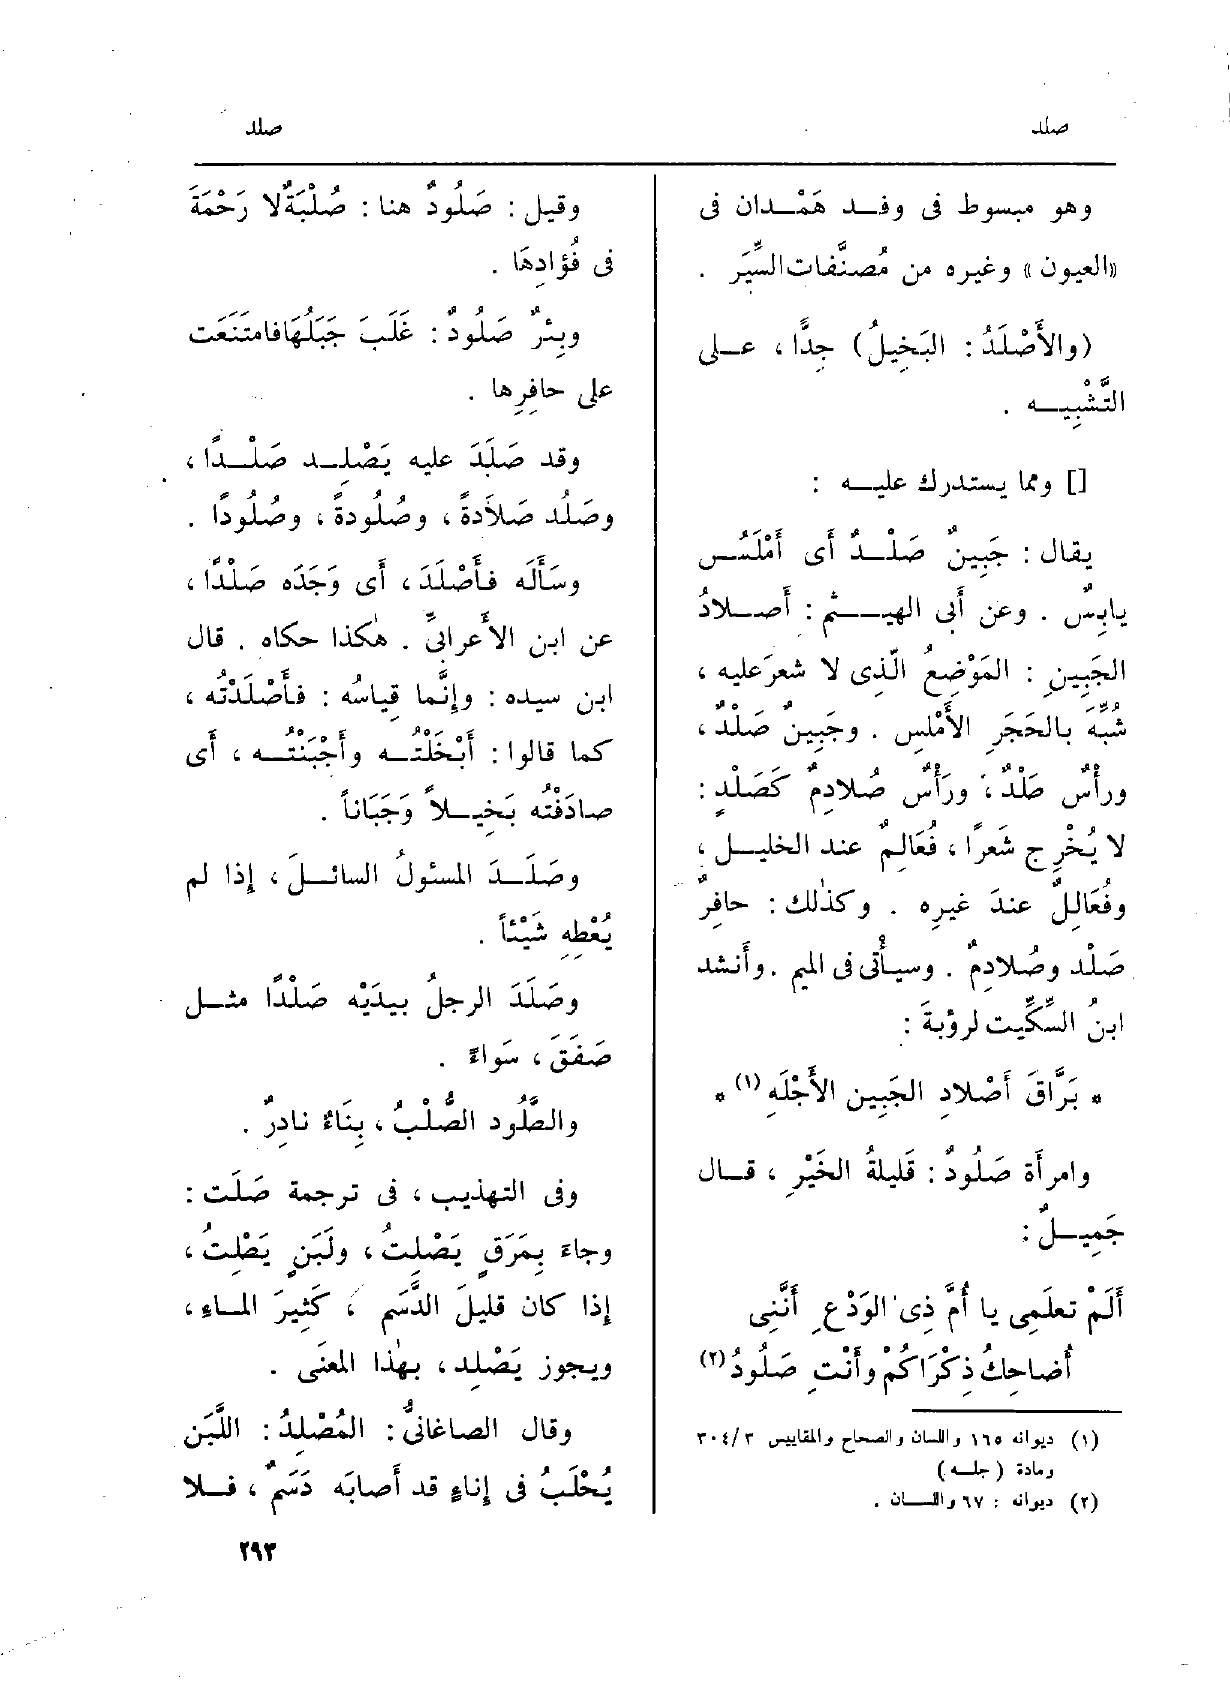 صلد
صلد
وهو مبسوط فى وفـد هَمْـدان فى
«العيون» وغيره من مُصنَّفات السِّيَر .
(والأَصْلَدُ : البَخِيلُ) جِدًّا ، عـلى
التَّشْبِيـه .
[] ومما يستدرك عليـه :
يقال : جَبِينٌ صَلْـدٌ أَى أَمْلَسُ
يابِسٌ . وعن أَبى الهيـثم : أَصـلادُ
الجَبِينِ : المَوْضِعُ الّذِى لا شعرَ عليه ،
شُبِّهَ بالحَجَرِ الأَمْلَسِ . وجَبِينٌ صَلْدٌ ،
ورأْسٌ صَلْدٌ ، ورَأْسٌ صُلَادِمٌ كَصَلْدٍ :
لا يُخْرِج شَعرًا ، فُعَالِمٌ عند الخليـل ،
وفُعَالِلٌ عندَ غيرِه . وكذٰلك : حافِرٌ
صَلْد وصُلَادِمٌ . وسيأْتى فى الميم . وأَنشد
ابنُ السِّكِّيت لرؤبةَ :
* بَرَّاقَ أَصْلادِ الجَبِينِ الأَجْلَهِ (١) *
وامرأَة صَلُودٌ : قَليلةُ الخَيْرِ ، قـال
جَمِيـلٌ :
أَلَمْ تعلَمِى يا أُمَّ ذِى الوَدْعِ أَنَّنِى
أُضاحِكُ ذِكْرَاكُمْ وأَنْتِ صَلُودُ (٢)
(١) ديوانه ١٦٥ واللسان والصحاح والمقاييس ٣٠٤/٣
ومادة (جله)
(٢) ديوانه : ٦٧ واللسـان .
وقيل : صَلُودٌ هنا : صُلْبَةٌ لا رَحْمَةَ
فى فُؤادِهَا .
وبِئرٌ صَلُودٌ : غَلَبَ جَبَلُهَا فامتَنَعَت
على حافِرِها .
وقد صَلَدَ عليه يَصْلِـد صَلْـدًا ،
وصَلُد صَلَادةً ، وصُلُودةً ، وصُلُودًا .
وسَأَلَه فأَصْلَدَ ، أَى وَجَدَه صَلْدًا ،
عن ابن الأَعرابىِّ . هٰكذا حكاه . قال
ابن سيده : وإِنَّما قِياسُه : فأَصْلَدْتُه ،
كما قالوا : أَبْخَلْتُـه وأَجْبَنْتُـه ، أَى
صادَفْتُه بَخِيـلاً وَجَبَاناً .
وصَلَـدَ المسئولُ السائـلَ ، إِذا لم
يُعْطِهِ شَيْئاً .
وصَلَدَ الرجلُ بيدَيْه صَلْدًا مثـل
صَفَقَ ، سَواءٌ .
والصَّلُود الصُّلْبُ ، بِنَاءٌ نادِرٌ .
وفى التهذيب ، فى ترجمة صَلَت :
وجاءَ بِمَرَقٍ يَصْلِتُ ، ولَبَنٍ يَصْلِتُ ،
إِذا كان قليلَ الدَّسَم ، كَثِيرَ المـاءِ ،
ويجوز يَصْلِد ، بهٰذا المعنَى .
وقال الصاغانىُّ : المُصْلِدُ : اللَّبَن
يُحْلَبُ فى إِناءٍ قد أَصابَه دَسَمٌ ، فـلا
٢٩٣